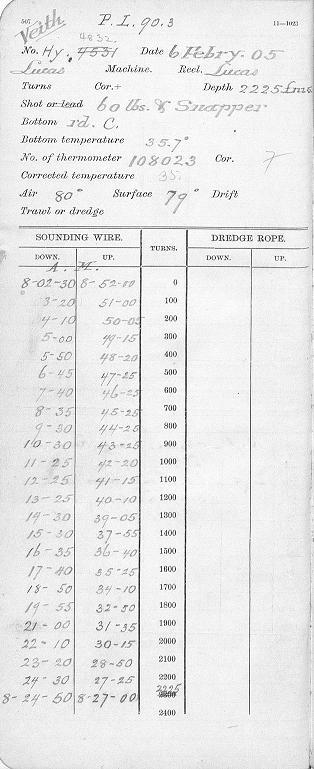 507 Veith P. L. 90.3 11—1023
4832.
No. Hy. 4531 Date 6 Febry. 05
Lucas Machine. Reel, Lucas
Turns Cor.+ Depth 2225 fms
Shot or lead 60 lbs. & Snapper
Bottom rd. C.
Bottom temperature 35.7°
No. of thermometer 108023 Cor.
Corrected temperature 35.
Air 80° Surface 79° Drift
Trawl or dredge
SOUNDING WIRE. TURNS. DREDGE ROPE.
DOWN. UP. DOWN. UP.
A. M.
8-02-30 8-52-00 0
3-20 51-00 100
4-10 50-05 200
5-00 49-15 300
5-50 48-20 400
6-45 47-25 500
7-40 46-25 600
8-35 45-25 700
9-30 44-25 800
10-30 43-25 900
11-25 42-20 1000
12-25 41-15 1100
13-25 40-10 1200
14-30 39-05 1300
15-30 37-55 1400
16-35 36-40 1500
17-40 35-25 1600
18-50 34-10 1700
19-55 32-50 1800
21-00 31-35 1900
22-10 30-15 2000
23-20 28-50 2100
24-30 27-25 2200
2225
8-24-50 8-27-00 2300
2400